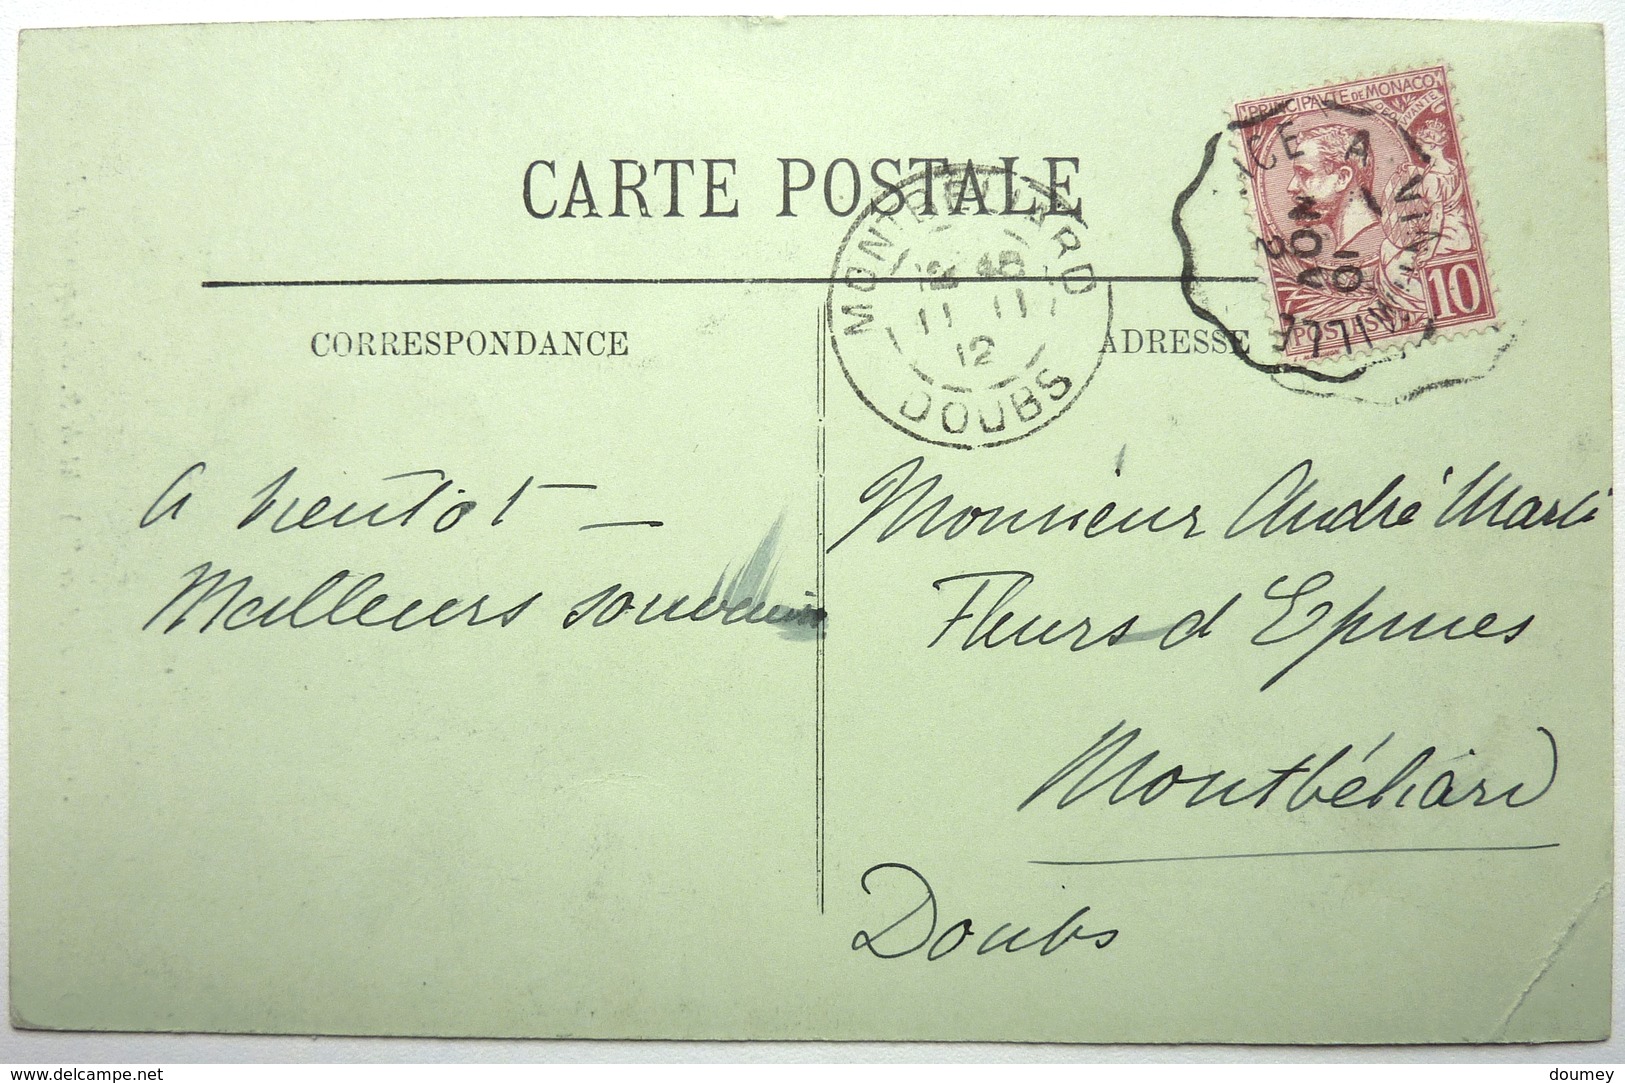 CARTE POSTALE
PRINCIPAUTE DE MONACO
10
POSTES
MONTBELIARD
11 11
12
DOUBS
CORRESPONDANCE
ADRESSE
A bientôt —
Meilleurs souvenirs
Monsieur André Marti
Fleurs d Epines
Montbéliard
Doubs
www.delcampe.net
doumey